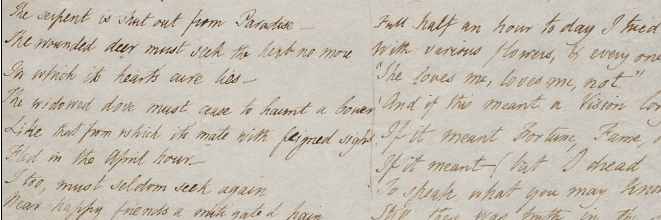 The serpent is shut out from Paradise –
The wounded deer must seek the herb no more
In which its hearts cure lies –
The widowed dove must cease to haunt a bower
Like that from which its mate with feigned sighs
Fled in the April hour. –
I too, must seldom seek again
Near happy friends a mitigated pain
Full half an hour to day I tried
With various flowers, & every one
"She loves me, loves me, not"
And if this meant a Vision
If it meant Fortune, Fame,
If it meant – (but I dread
To speak what you may
there was truth in